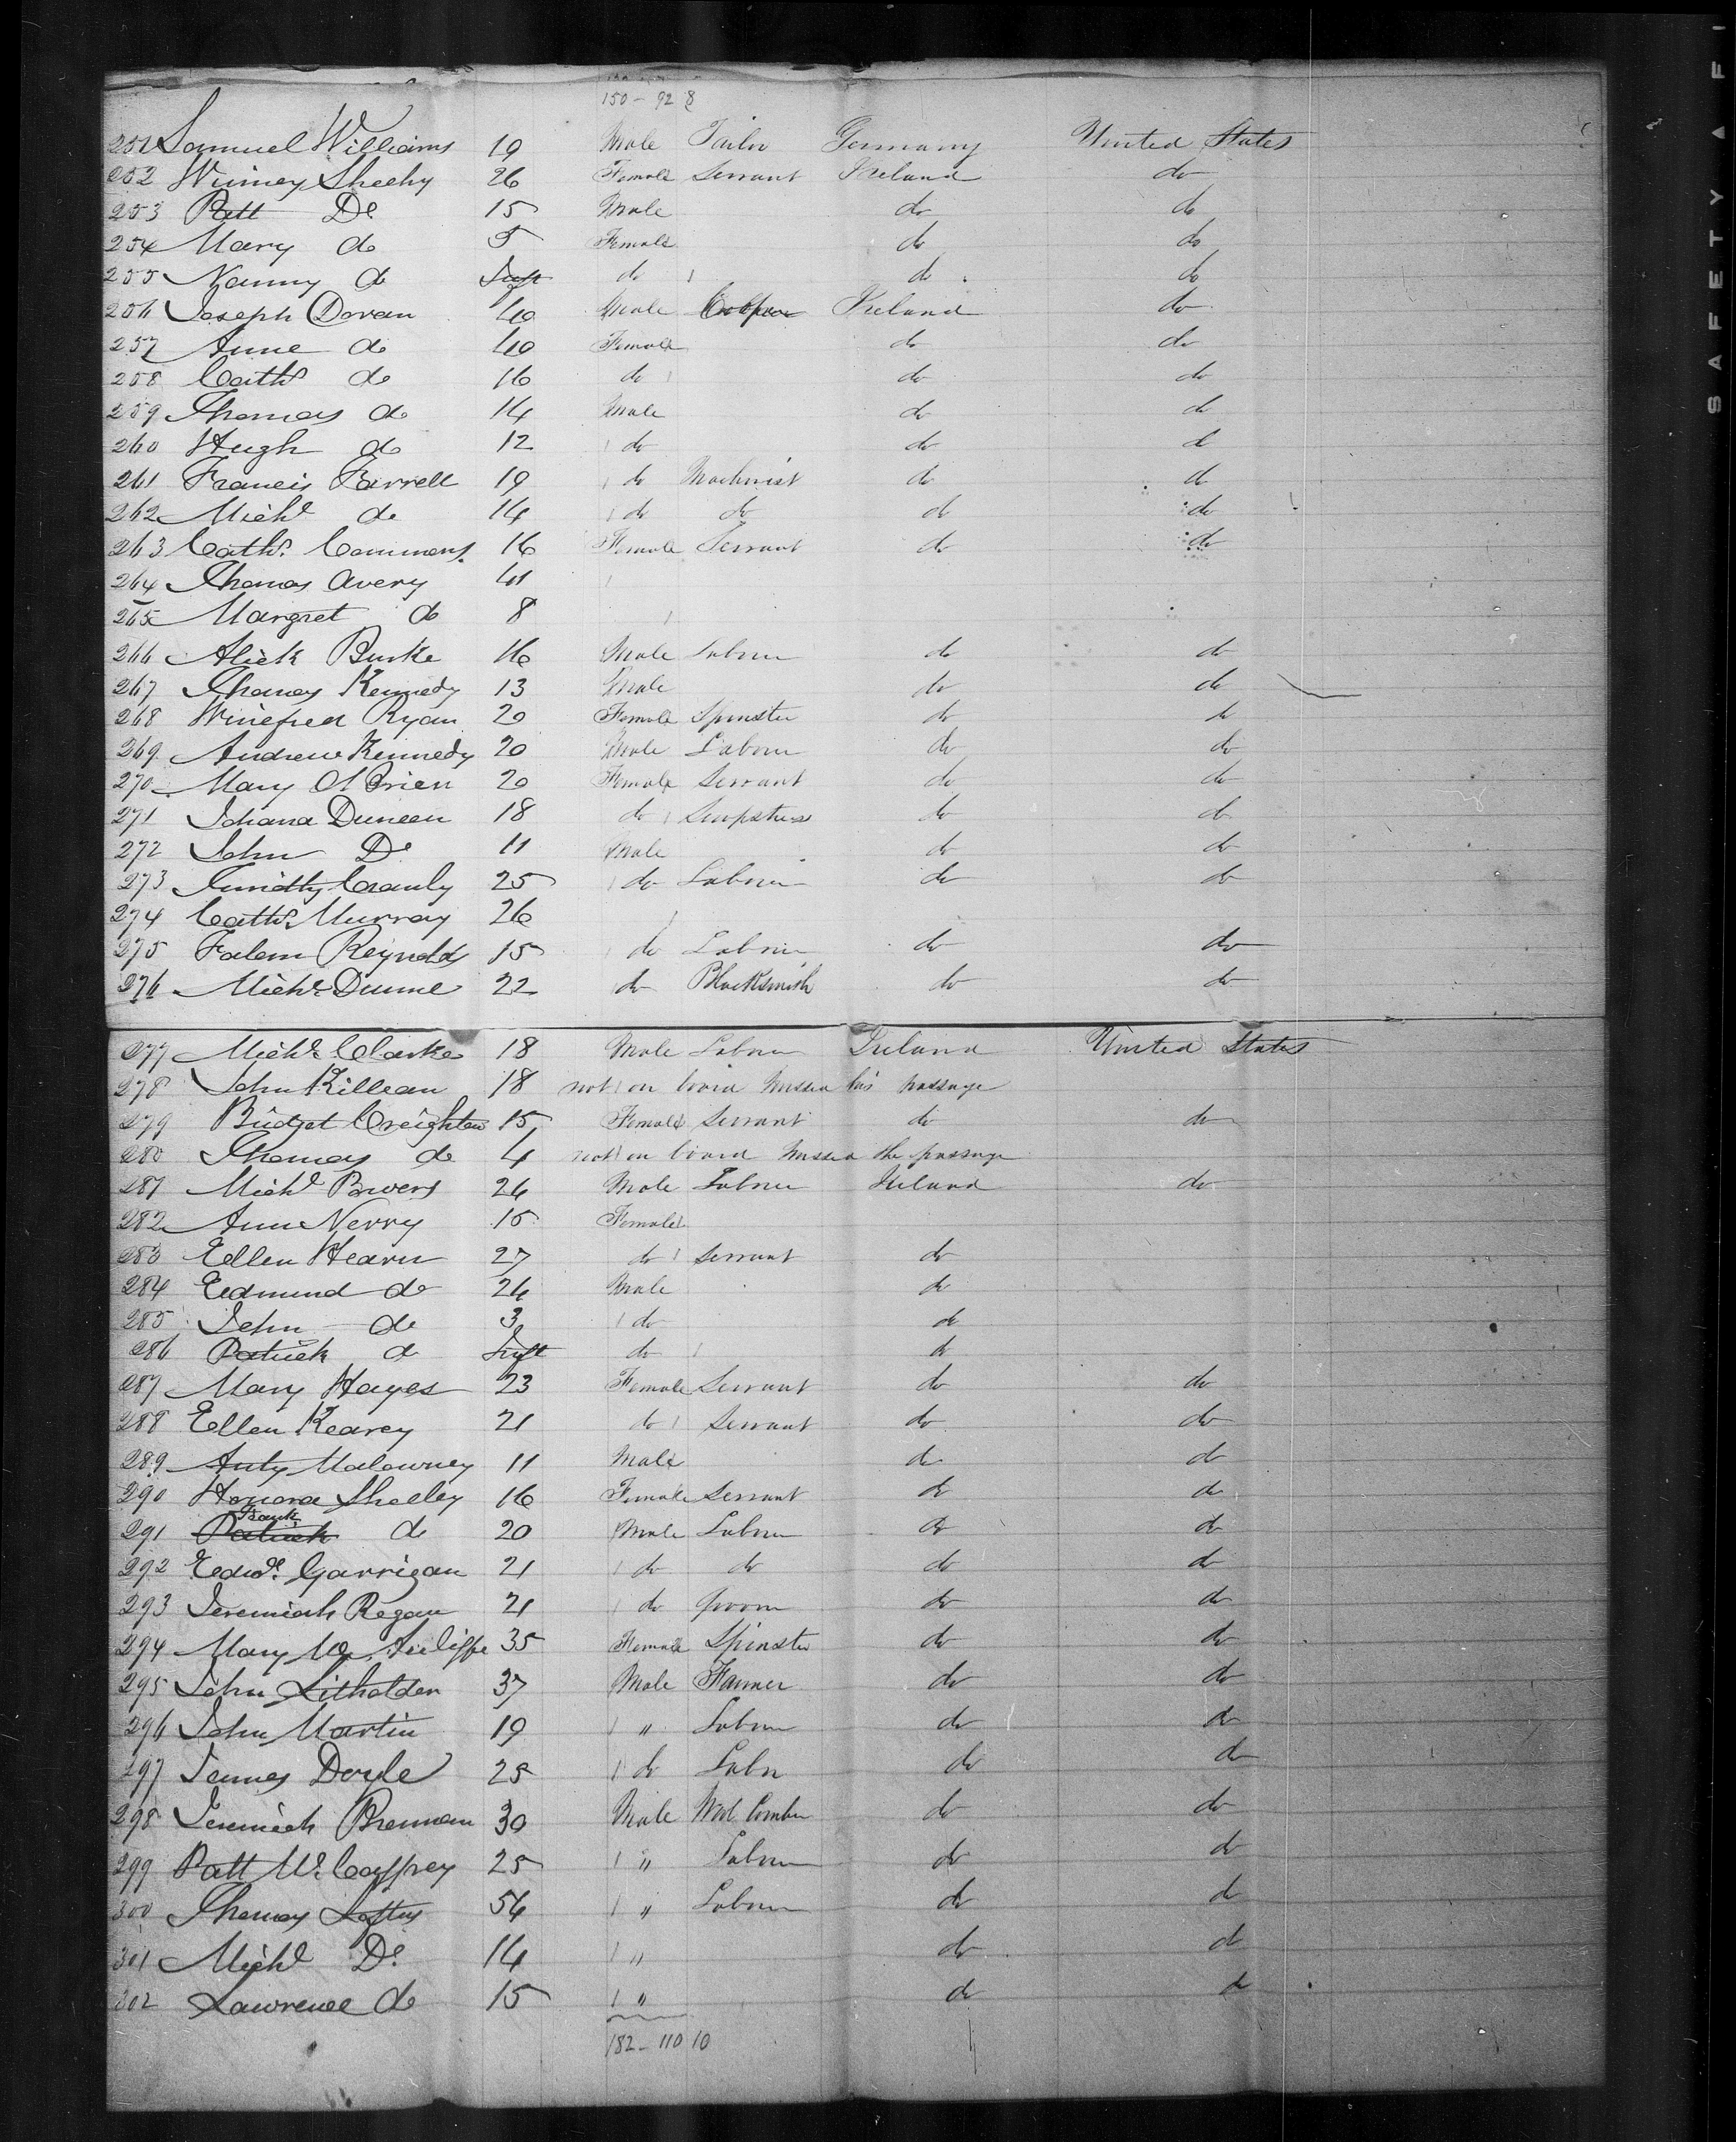 150 - 92 8
251 Samuel Williams 19 Male Tailor Germany United States
252 Winney Sheehy 26 Female Servant Ireland do
253 Patt Do 15 Male do do
254 Mary do 5 Female do do
255 Nanny do Inft do do do
256 Joseph Doran 40 Male Ireland do
257 Anne do 40 Female do do
258 Cathe do 16 do do do
259 Thomas do 14 Male do do
260 Hugh do 12 do do do
261 Francis Farrell 19 do Machinist do do
262 Michl do 14 do do do do
263 Cathe Commons 16 Female Servant do do
264 Thomas Avery 41
265 Margret do 8
266 Alick Burke 16 Male Labour do do
267 Thomas Kennedy 13 Male do do
268 Winefred Ryan 20 Female Spinster do do
269 Andrew Kennedy 20 Male Labour do do
270 Mary O'Brien 20 Female Servant do do
271 Johana Duneen 18 do Sempstress do do
272 John Do 11 Male do do
273 Timothy Crauly 25 do Labour do do
274 Cathe Murray 26
275 Reynolds 15 do Labour do do
276 Michl Dunne 22 do Blacksmith do do
277 Michl Clarke 18 Male Labour Ireland United States
278 John Killean 18 not on board missed his passage
279 Bridget Creighton 15 Female Servant do do
280 Thomas do 4 not on board missed the passage
281 Michl Powers 24 Male Labour Ireland do
282 Ann Nerry 15 Female
283 Ellen Hearn 27 do Servant do
284 Eedmund do 24 Male do
285 John do 3 do do
286 Patrick do Inft do do
287 Mary Hayes 23 Female Servant do do
288 Ellen Kearey 21 do Servant do do
289 Anty Malowney 11 Male do do
290 Honora Sheeley 16 Female Servant do do
Frank
291 Patrick do 20 Male Labour do do
292 Eedwd Garrigan 21 do do do do
293 Jeremiah Regan 21 do Groom do do
294 Mary Mc 35 Female Spinster do do
295 John Litholder 37 Male Farmer do do
296 John Martin 19 " Labour do do
297 James Doyle 25 do Labr do do
298 Jeremiah Brennan 30 Male Wool Comber do do
299 Patt McCaffrey 25 " Labour do do
300 Thomas Loftus 54 " Labour do do
301 Michl Do 14 " do do
302 Lawrence do 15 " do do
182 - 110 10
SAFETY